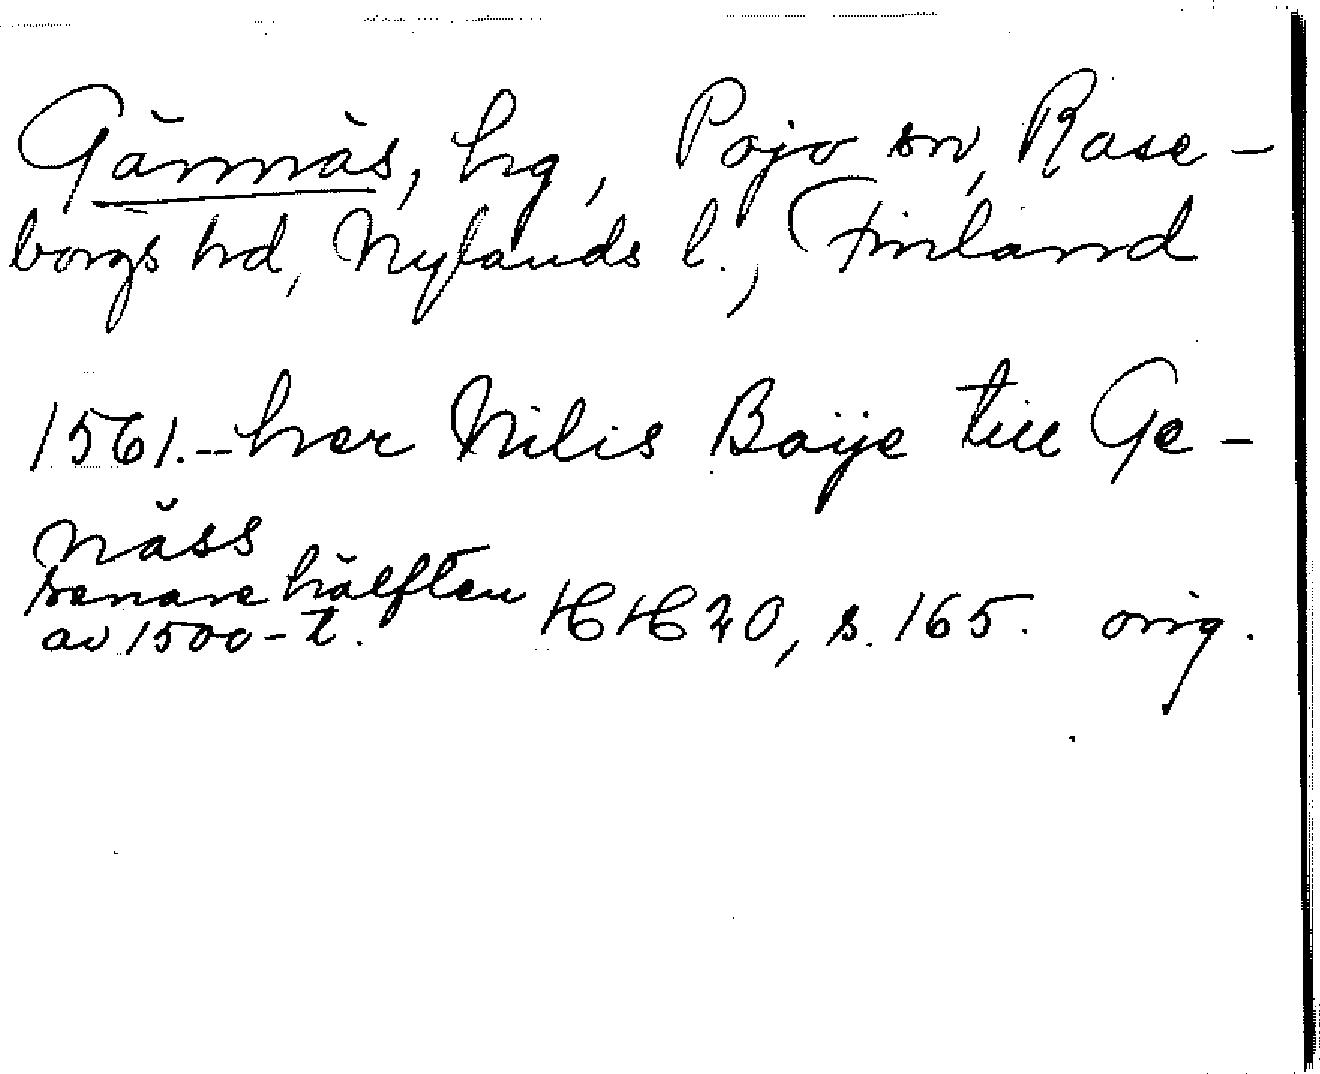 Gännäs, hg, Pojo sn, Rase-
borgs hd, Nylands l., Finland
1561.--her Nilis Boije till Ge-
näss
senare hälften
av 1500-t. HH 20, s. 165. orig.